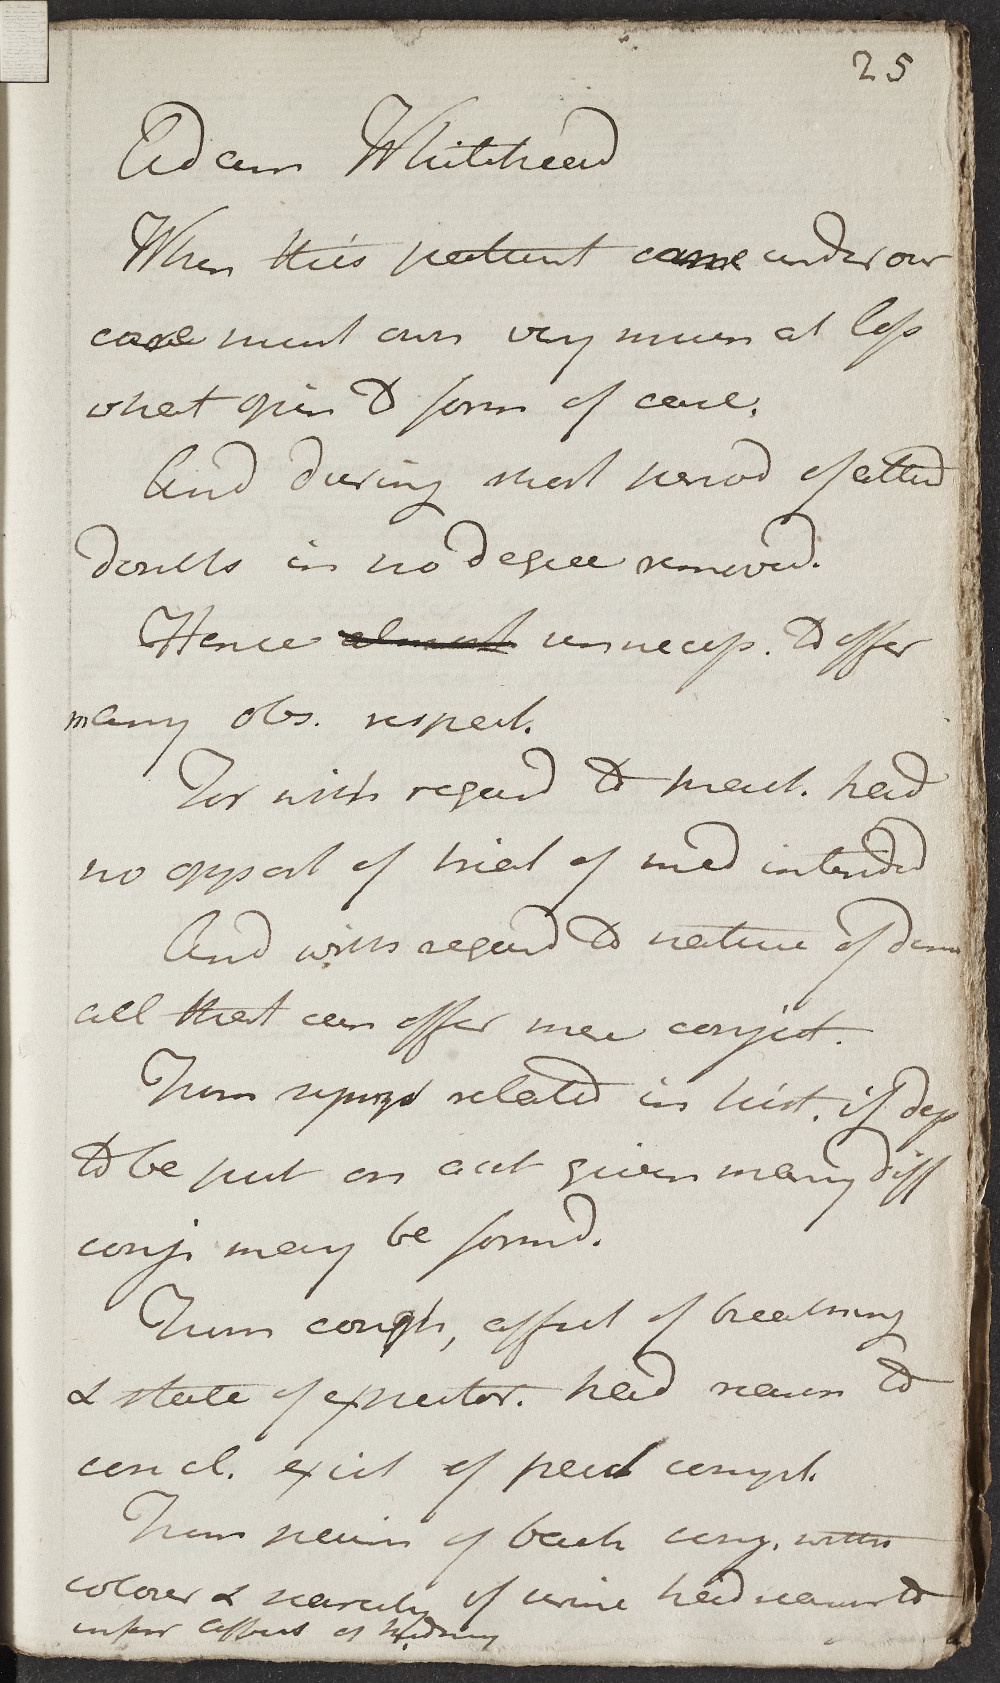 25
Adam Whitehead
When this patient came under our
care must own very much at loss
what opin to form of case.
And during short period of attend
doubts in no degree removed.
Hence almost unnecess. to offer
many obs. respect.
For with regard to treat. had
no opport of trial of med intended
And with regard to nature of
all that can offer mere conject.
From related in hist. if dep
to be put on acct given many diff
conj. may be formd.
From cough, affect of breathing
& state of expector. had reason to
concl. exist of pect compt.
From pain of back conj. with
colour & scarcity of urine had reason to
infer affect of kidney